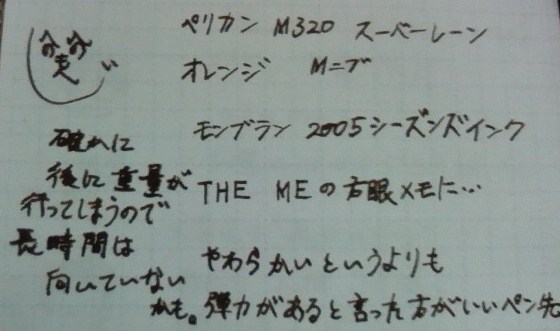 ペリカン M320 スーベーレーン
オレンジ Mニブ
モンブラン 2005シーズンズインク
THE MEの方眼メモに…
やわらかいというよりも
弾力があると言った方がいいペン先
確かに
後に重量が
行ってしまうので
長時間は
向いていない
かも。